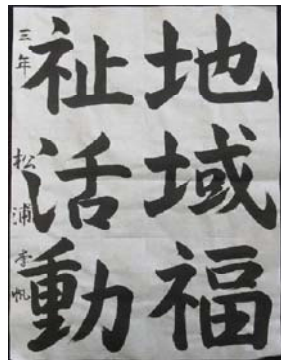 地域福
祉活動
三年 松浦帆